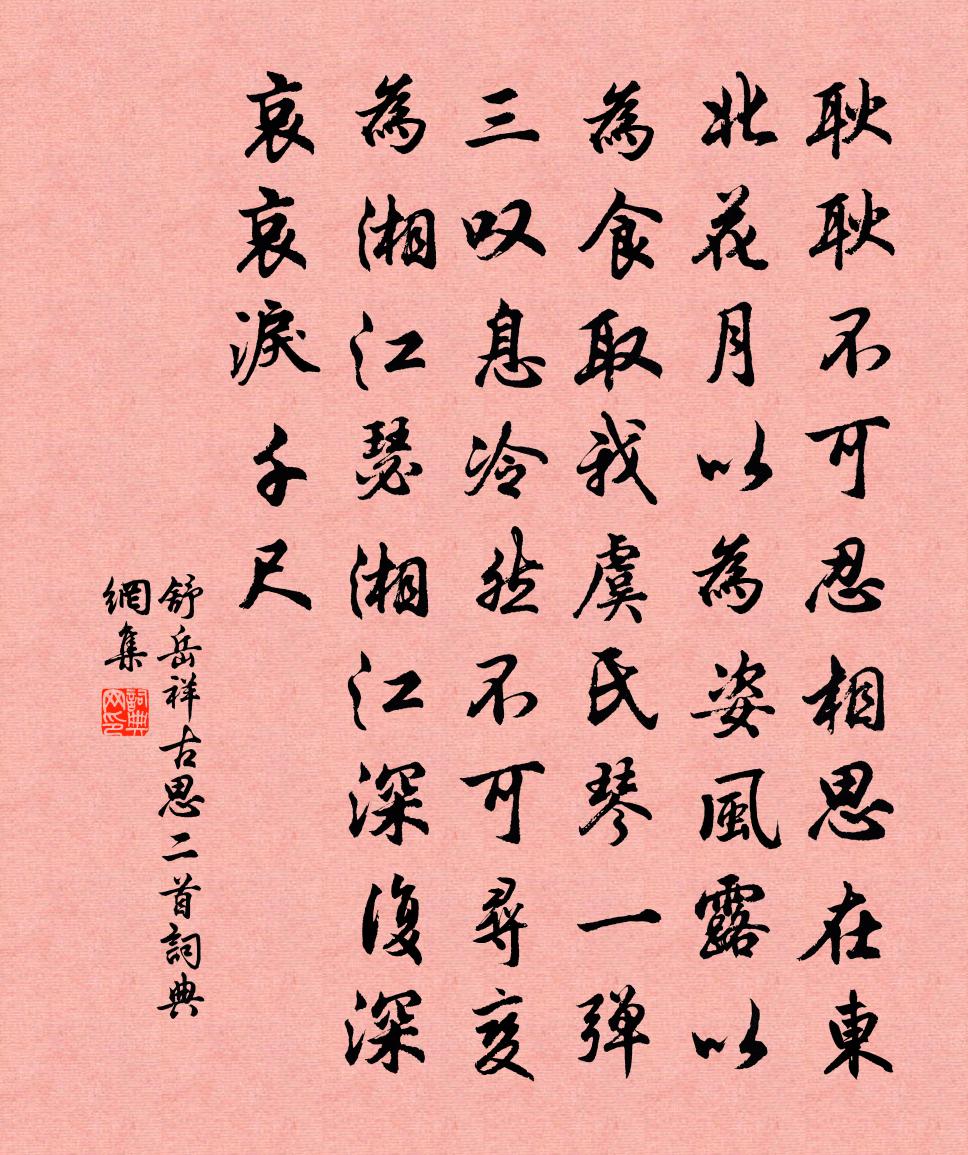 耿耿不可忍相思在東
北花月以為姿風露以
為食取我虞氏琴一弹
三叹息冷然不可尋变
為湘江瑟湘江深復深
哀哀淚千尺
舒岳祥古思二首詞典
網集
詞典网印